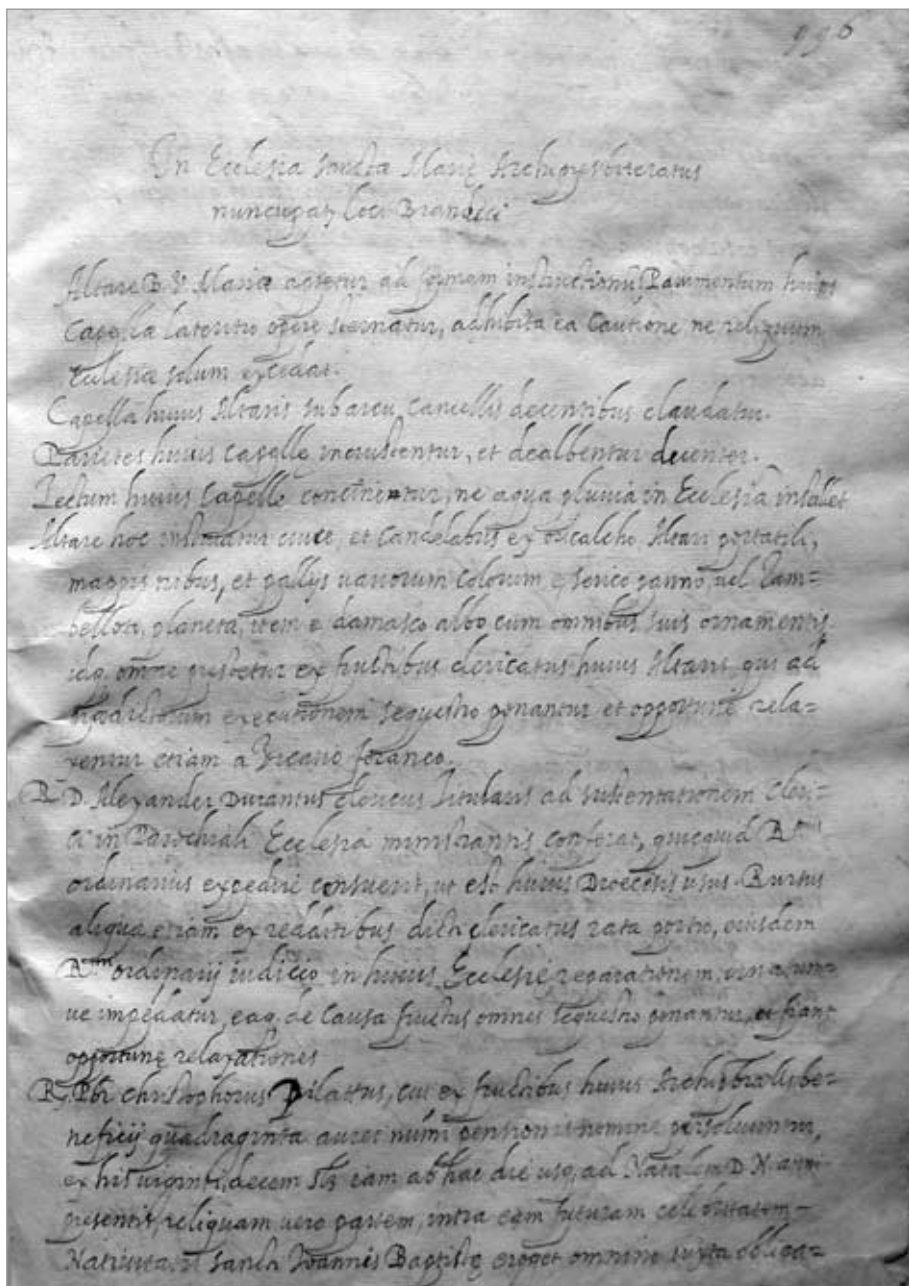 996
In Ecclesia Sancta Marię Archipresbiteratus
nuncupatę loci Brandici
Altare B. V. Mariæ aptetur ad formam instructionũ Pauimentum huius
Capella lateritio opere sternatur, adhibita ea Cautione ne reliquum
Ecclesiæ solum excedat.
Capella huius Altaris sub arcu Cancellis decentibus claudatur.
Parietes huius Capellę incrustentur, et dealbentur decenter.
Tectum huius Capellę concinentur, ne aqua pluuia in Ecclesia instillet
Altare hoc instruatur cruce, et Candelabris ex oricalcho, Altari portatili,
mappis tribus, et pallys uariorum colorum e serico panno, uel Zam=
bellotti, planeta, item e damasco albo cum omnibus suis ornamentis
idq. omne prestetur ex fructibus clericatus huius Altaris, qui ad
prædictorum executionem sequestro ponantur et opportune rela=
xentur etiam a Vicario foraneo.
R. D. Alexander Durantus Clericus titularis ad sustentationem Cleri=
ci in Parochiali Ecclesia ministrantis conferat, quicquid R.mus
ordinarius expedire consuerit, ut est huius Diœcesis usus. Rursus
aliqua etiam ex redditibus dicti clericatus rata portio, eiusdem
R.mi ordinarij iudicio in huius Ecclesię reparationem, ornatum=
ue impendatur, eaq. de Causa fructus omnes sequestro ponantur, et fiant
opportunę relaxationes
R. Pbr Christophorus Pilattus, cui ex fructibus huius Archipbrālis be=
neficij quadraginta aurei numi pensionis nomine persoluuntur,
ex his uiginti, decem sĩz iam ab hac die usq. ad Natalem D. N. anni
presentis, reliquam uero partem, intra eam futuram celebritatem
Natiuitatis Sancti Ioannis Baptistę eroget omnino iuxta obliga=